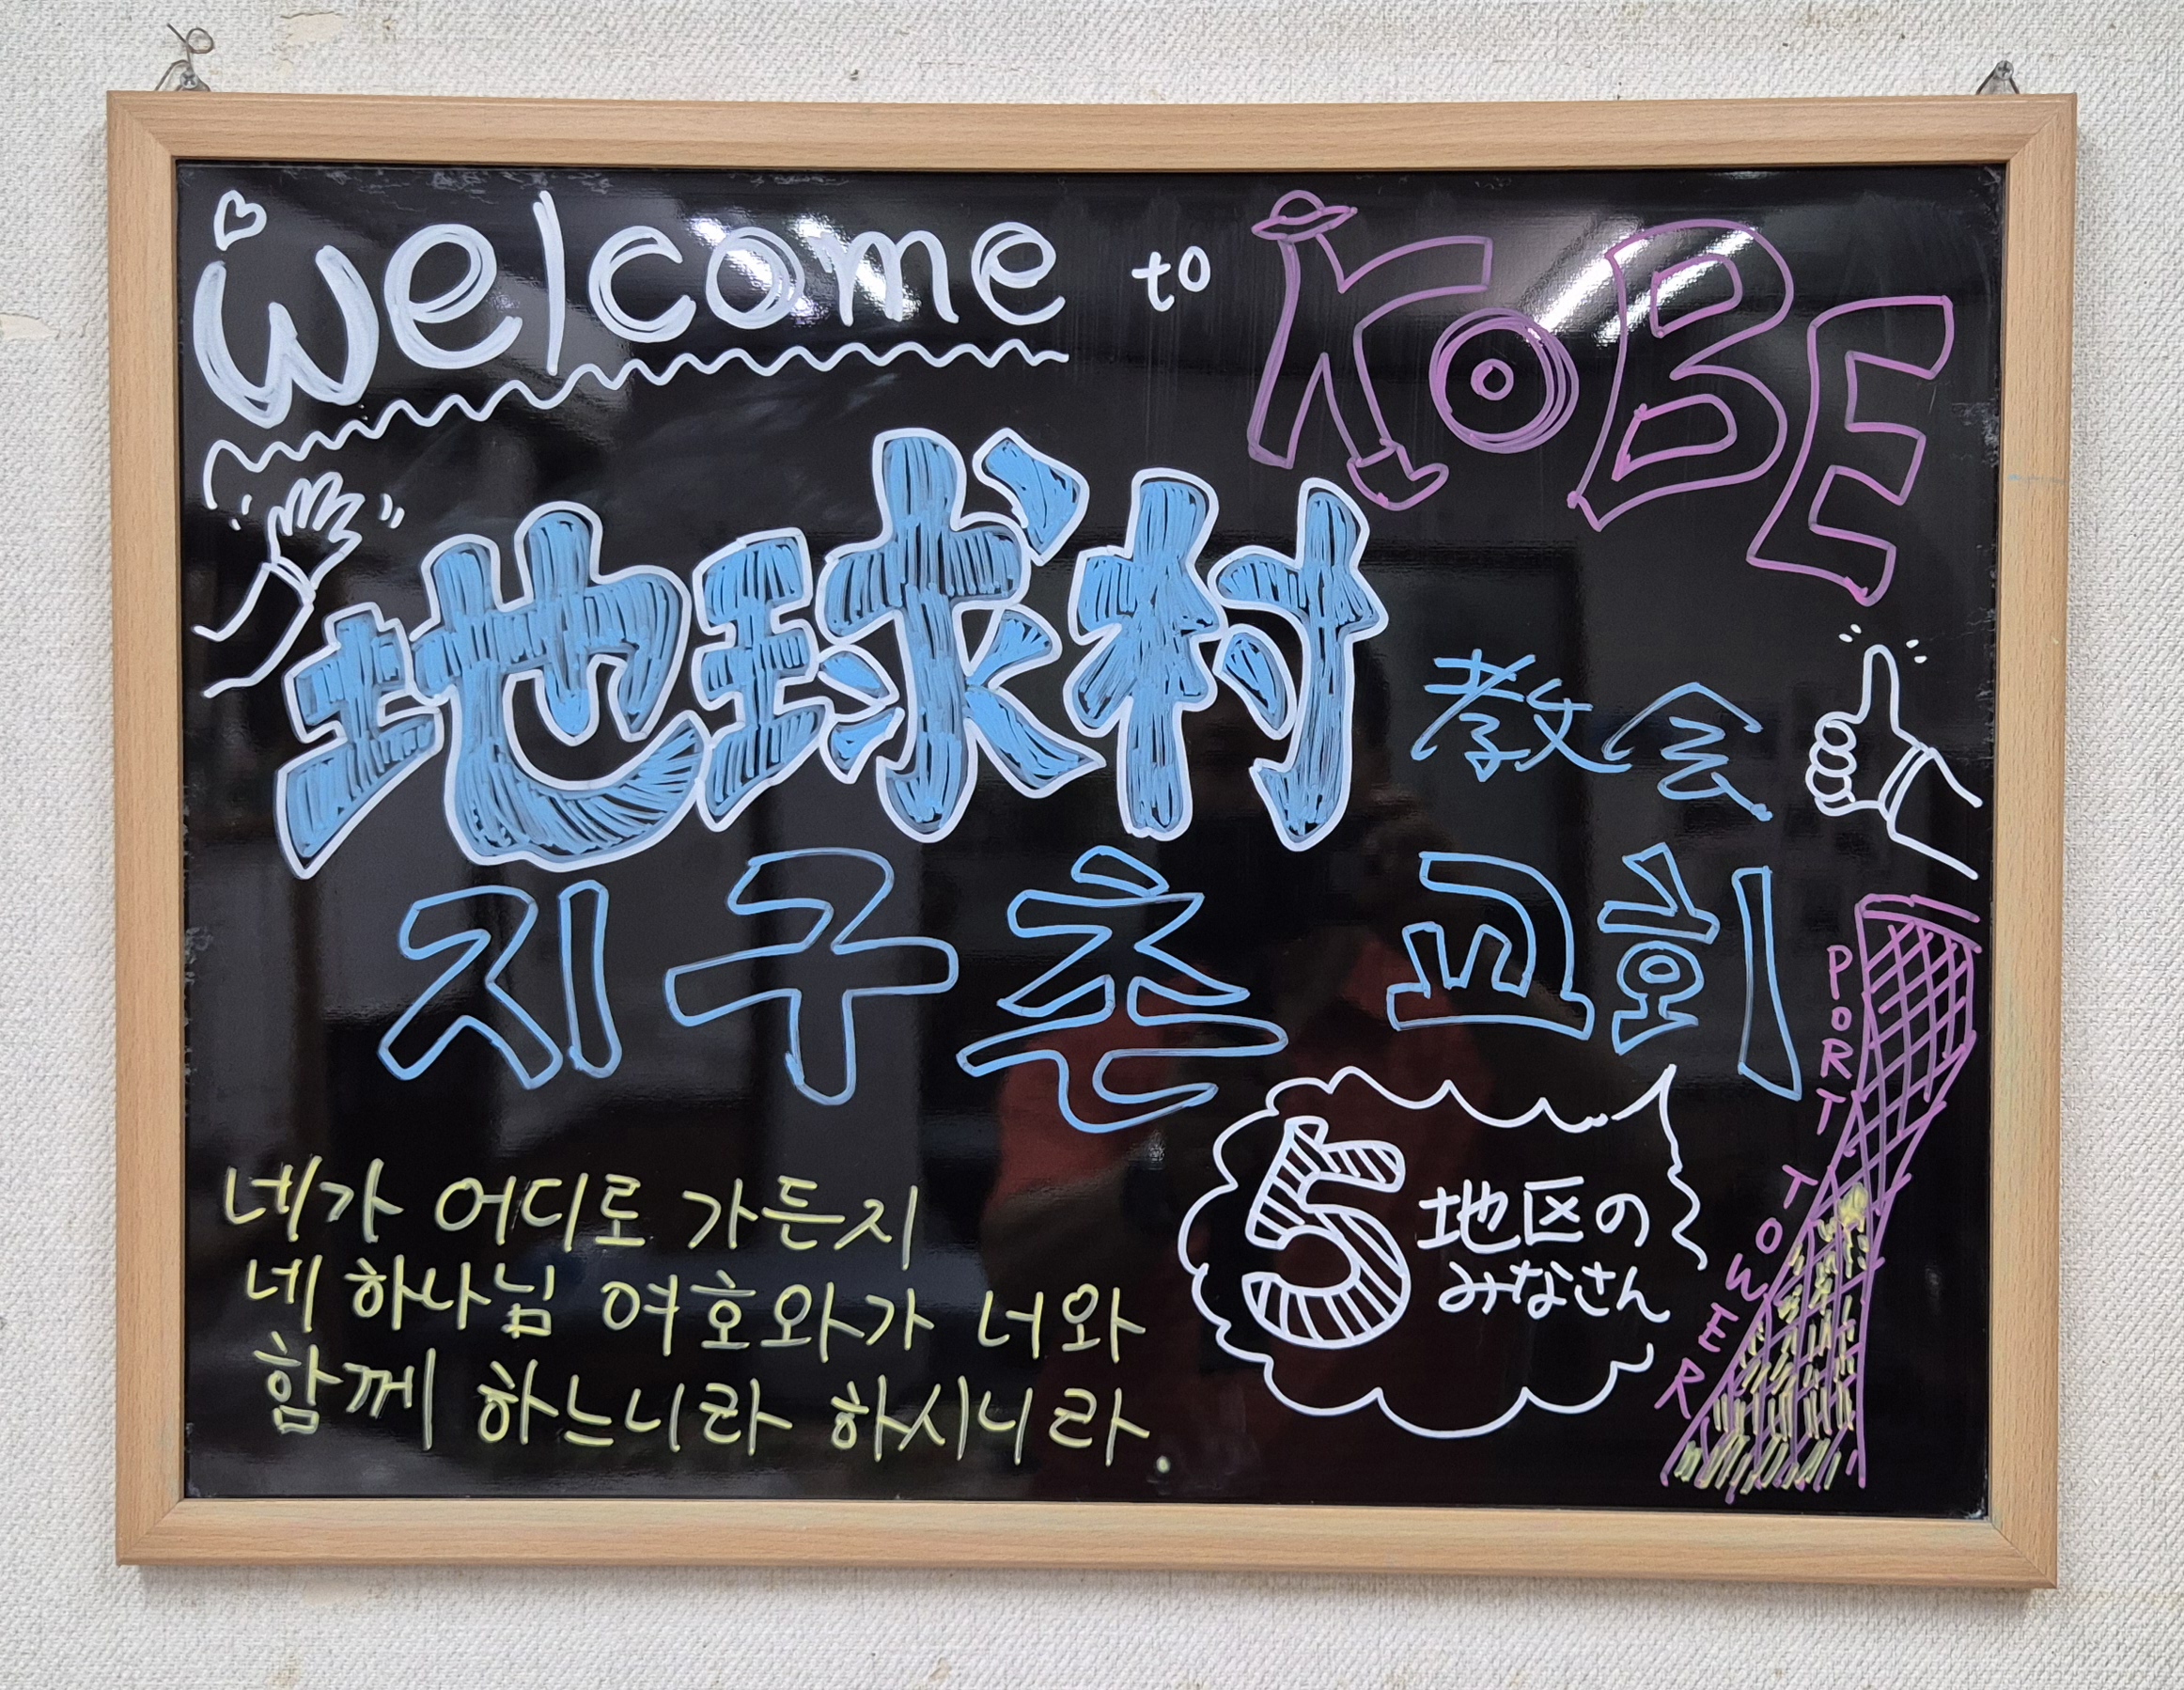 Welcome to KOBE
地球村 教会
지구촌 교회
네가 어디로 가든지
네 하나님 여호와가 너와
함께 하느니라 하시니라.
5 地区の
みなさん
PORT TOWER